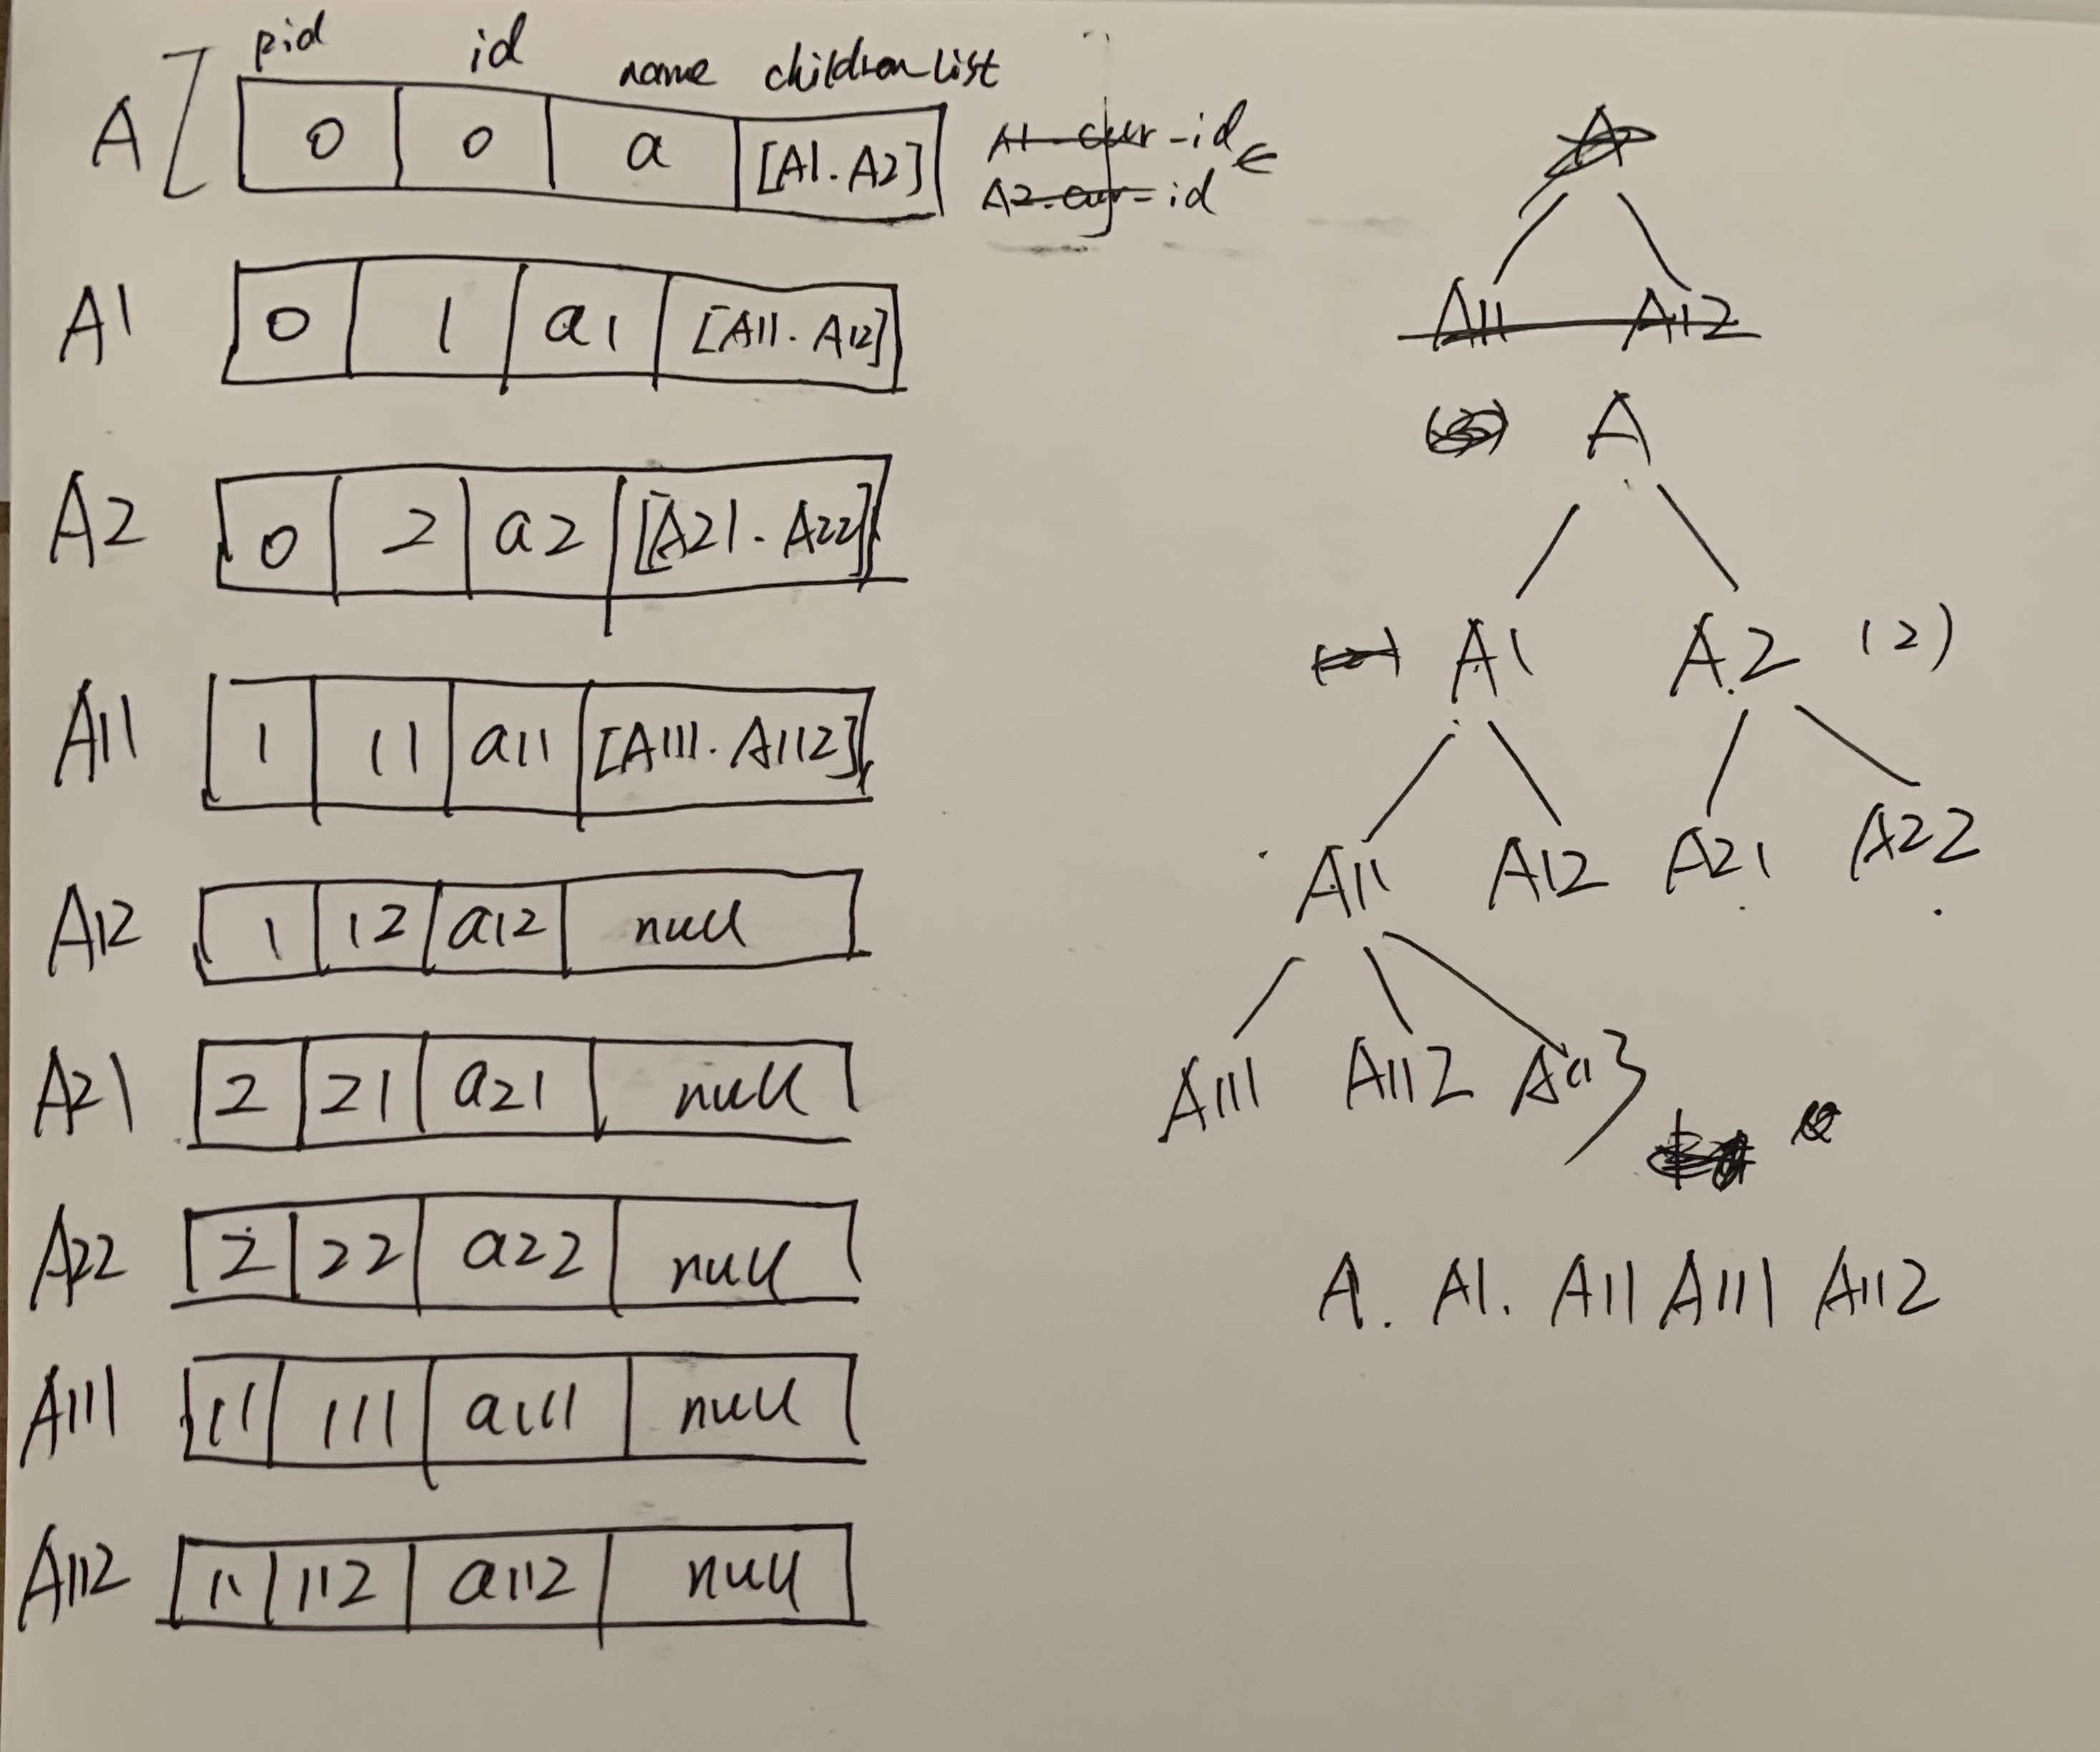 pid id name children list
A 0 0 a [A1. A2]
A1 0 1 a1 [A11. A12]
A2 0 2 a2 [A21. A22]
A11 1 11 a11 [A111. A112]
A12 1 12 a12 null
A21 2 21 a21 null
A22 2 22 a22 null
A111 11 111 a111 null
A112 11 112 a112 null
A1 -id
A2. -id
A
A11 A12
A
A1 A2 (2)
A11 A12 A21 A22
A111 A112 A113
A. A1. A11 A111 A112